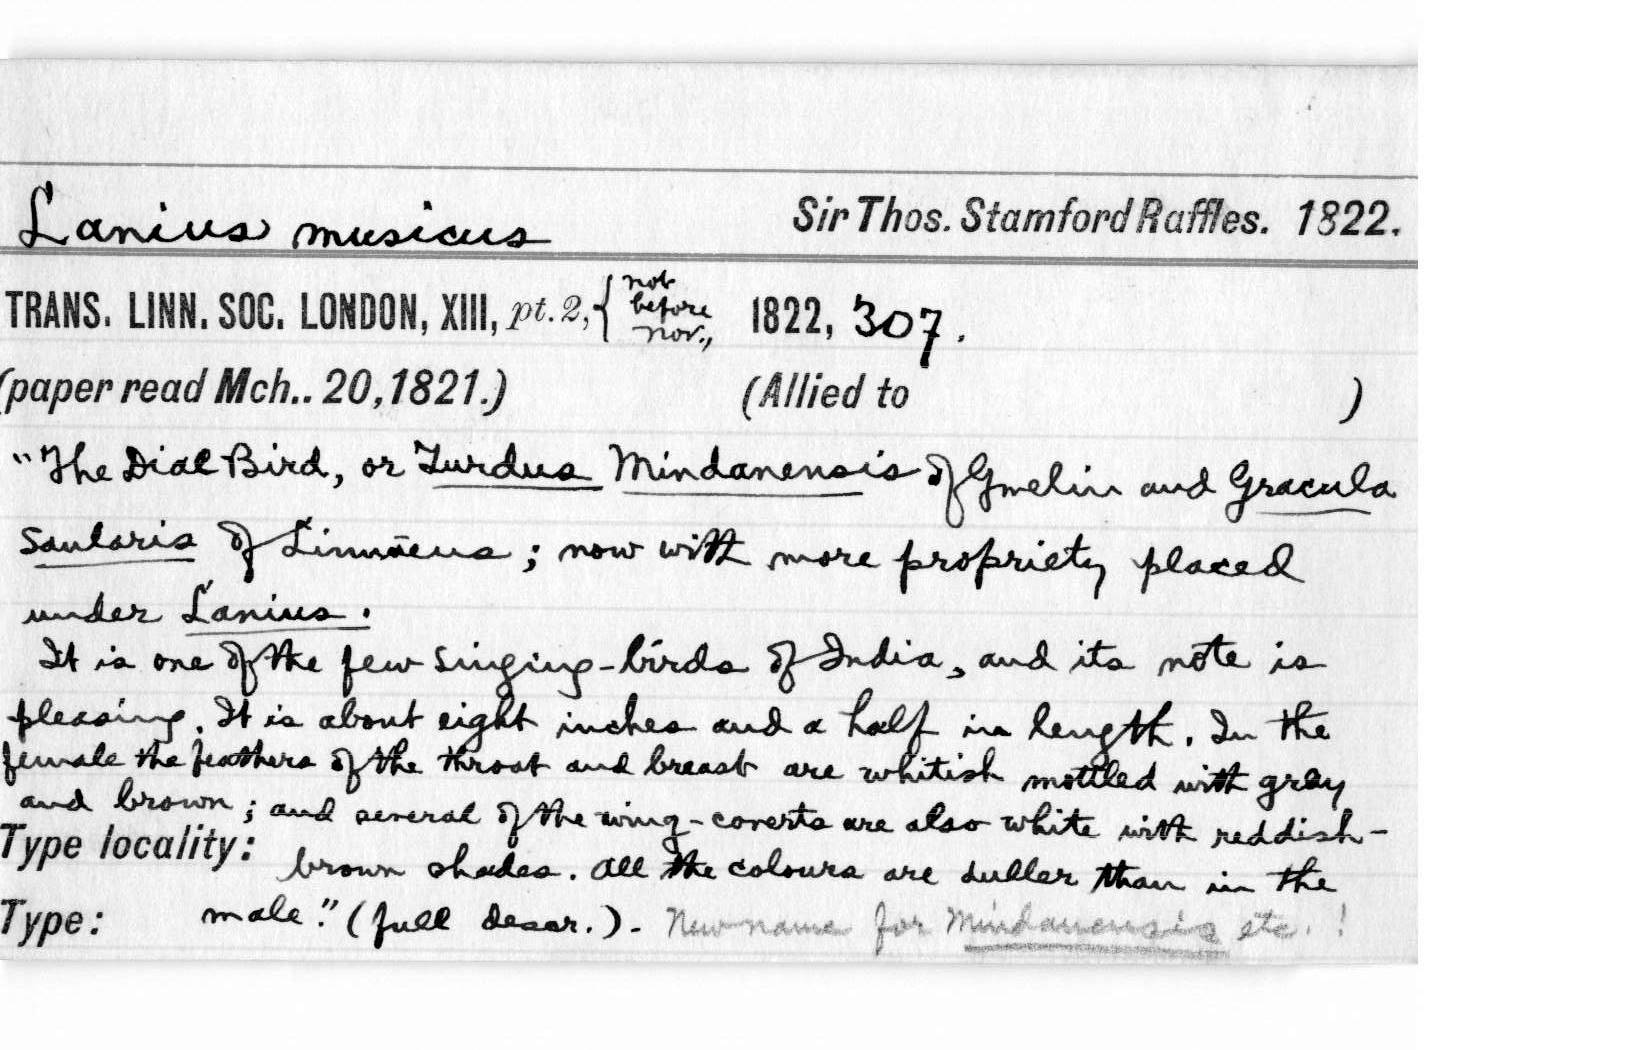 Lanius musicus Sir Thos. Stamford Raffles. 1822.
TRANS. LINN. SOC. LONDON, XIII, pt. 2, { not before Nov., 1822, 307.
(paper read Mch.. 20, 1821.) (Allied to )
"The Dial Bird, or Turdus Mindanensis of Gmelin and Gracula
Saularis of Linnæus; now with more propriety placed
under Lanius.
It is one of the few singing-birds of India, and its note is
pleasing. It is about eight inches and a half in length. In the
female the feathers of the throat and breast are whitish mottled with gray
and brown; and several of the wing-coverts are also white with reddish-
Type locality: brown shades. All the colours are duller than in the
Type: male." (full descr.). New name for Mindanensis etc.!